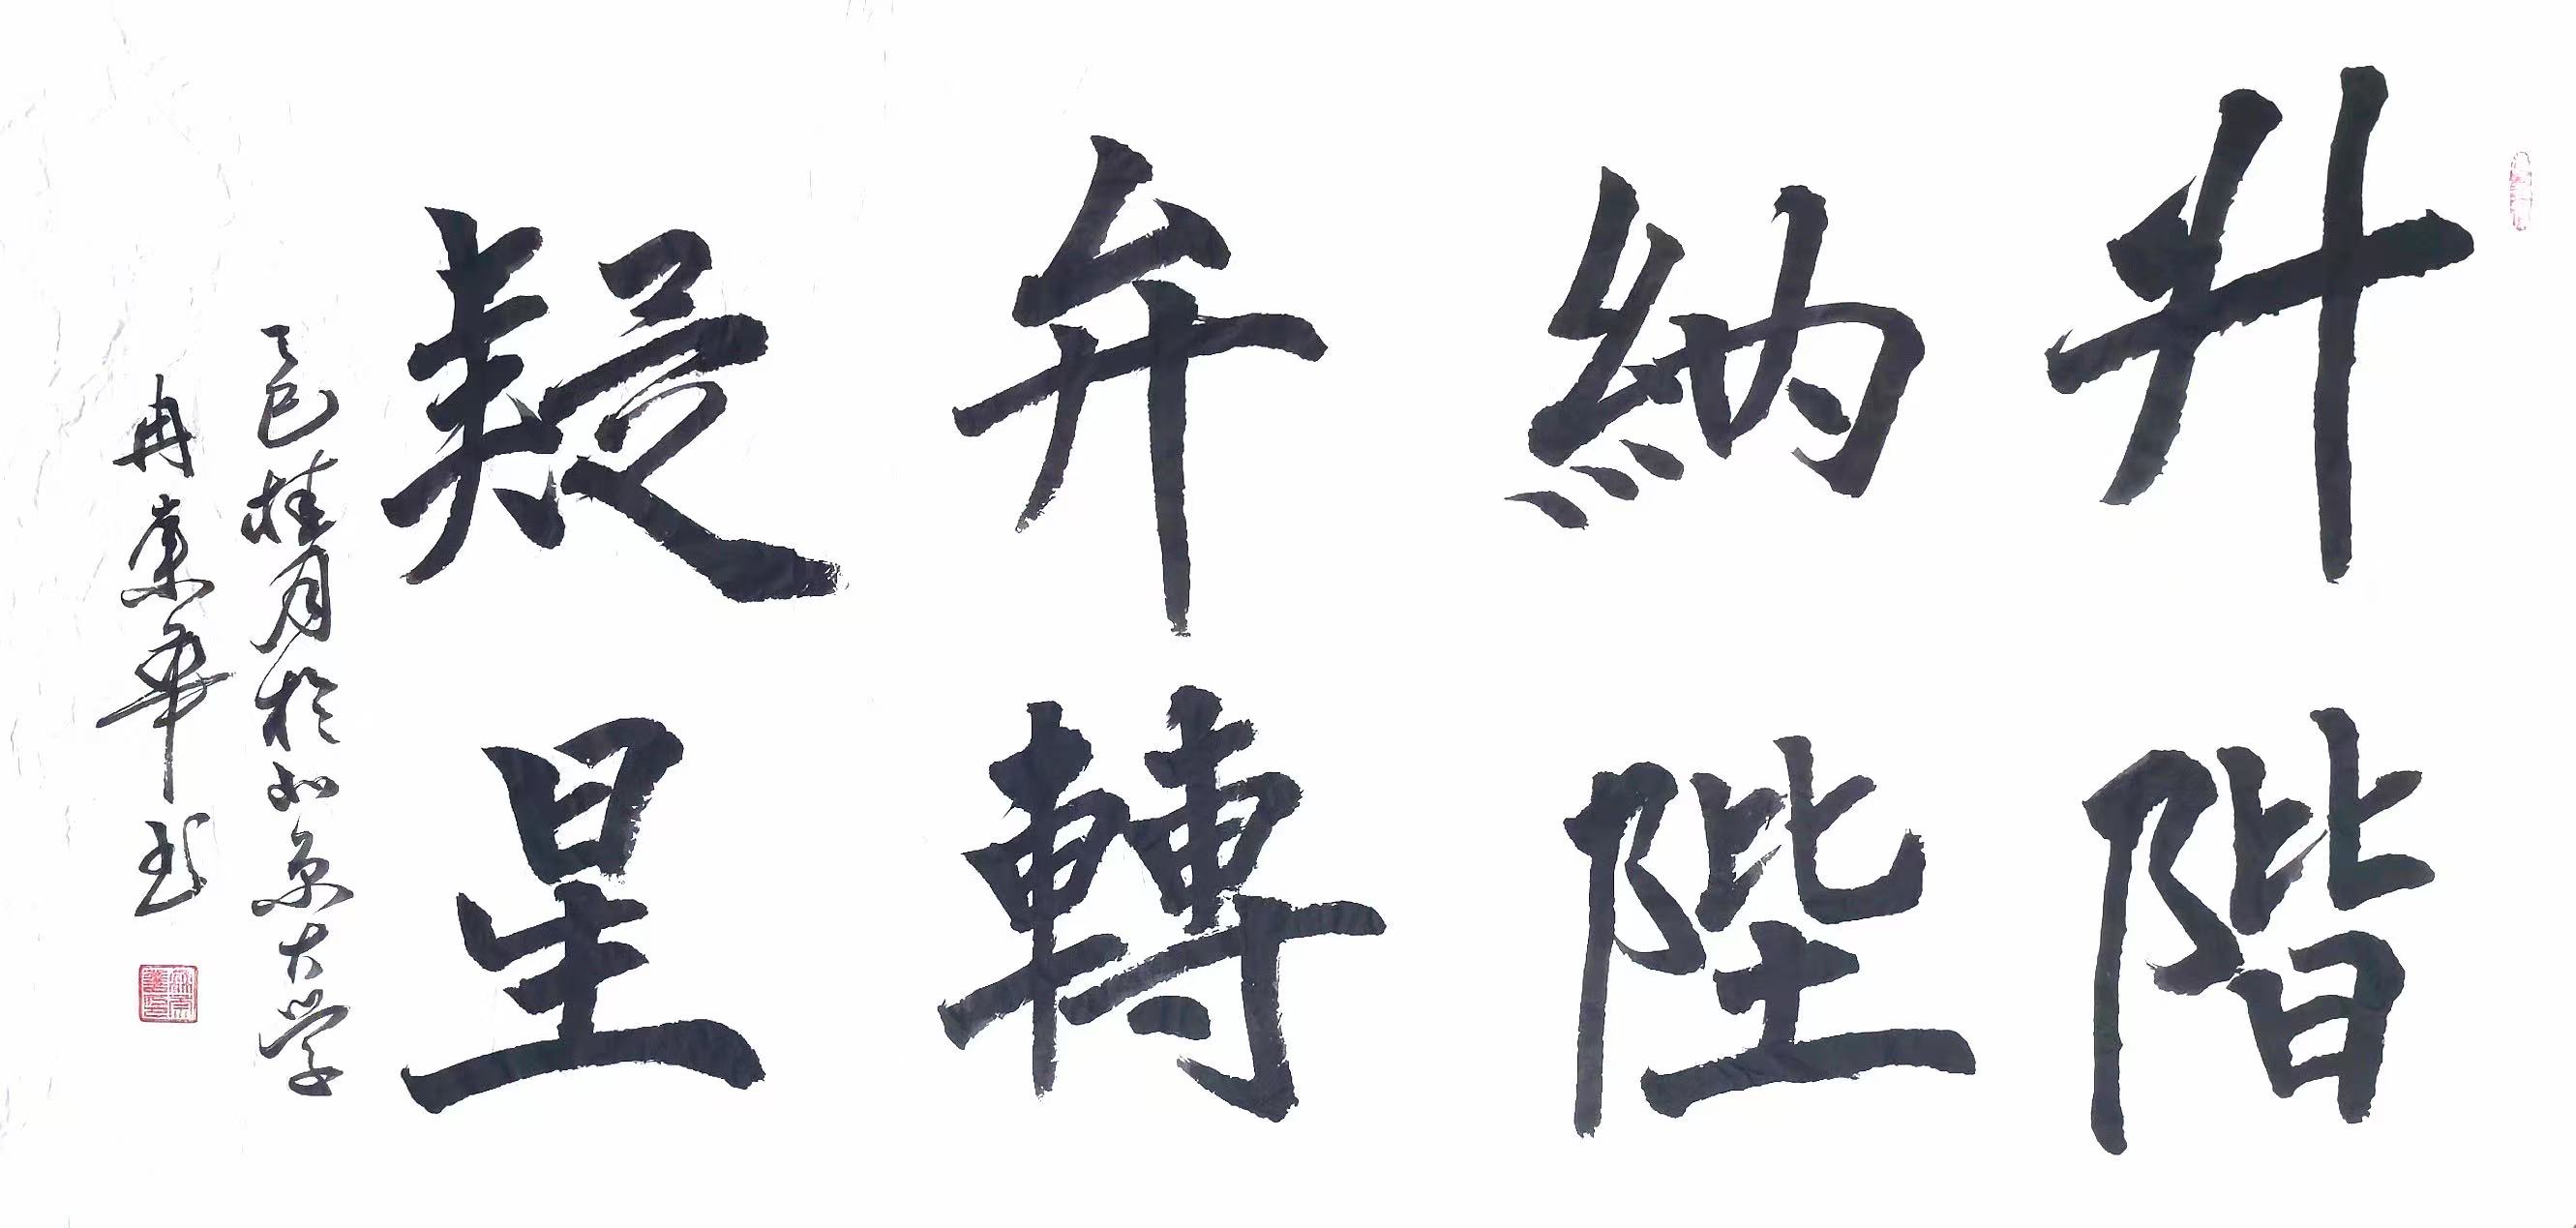 升階
納陛
弁轉
疑星
乙巳桂月於北京大学
冉崇華书